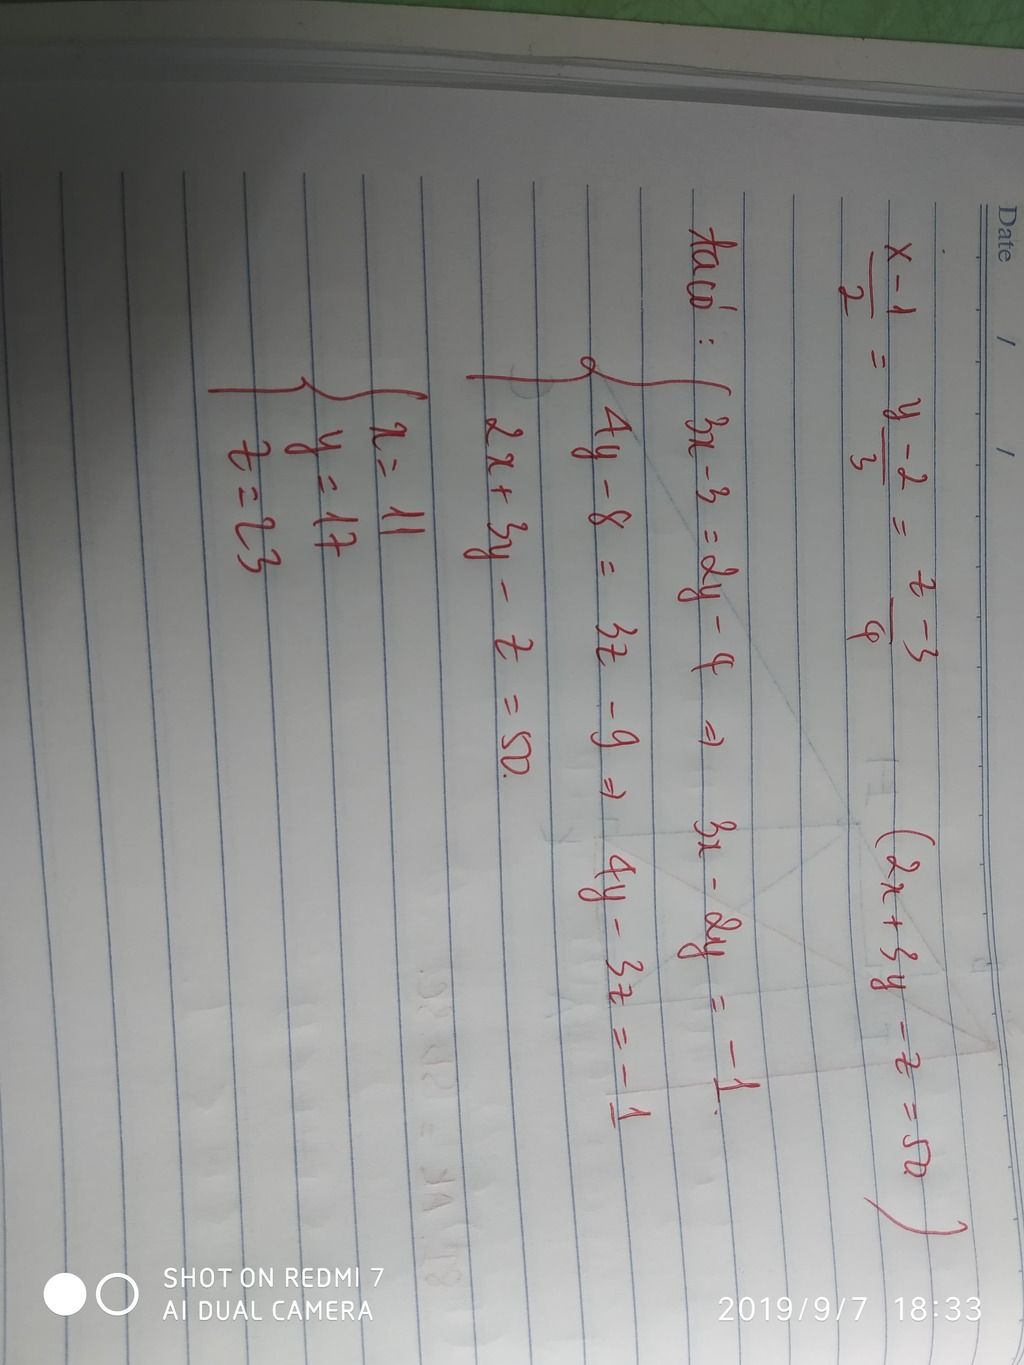 Date / /
x-1/2 = y-2/3 = z-3/4 (2x+3y-z=50)
ta có: { 3x-3=2y-4 ⇒ 3x-2y=-1.
4y-8=3z-9 ⇒ 4y-3z=-1
2x+3y-z=50.
{ x=11
y=17
z=23
SHOT ON REDMI 7
AI DUAL CAMERA
2019/9/7 18:33